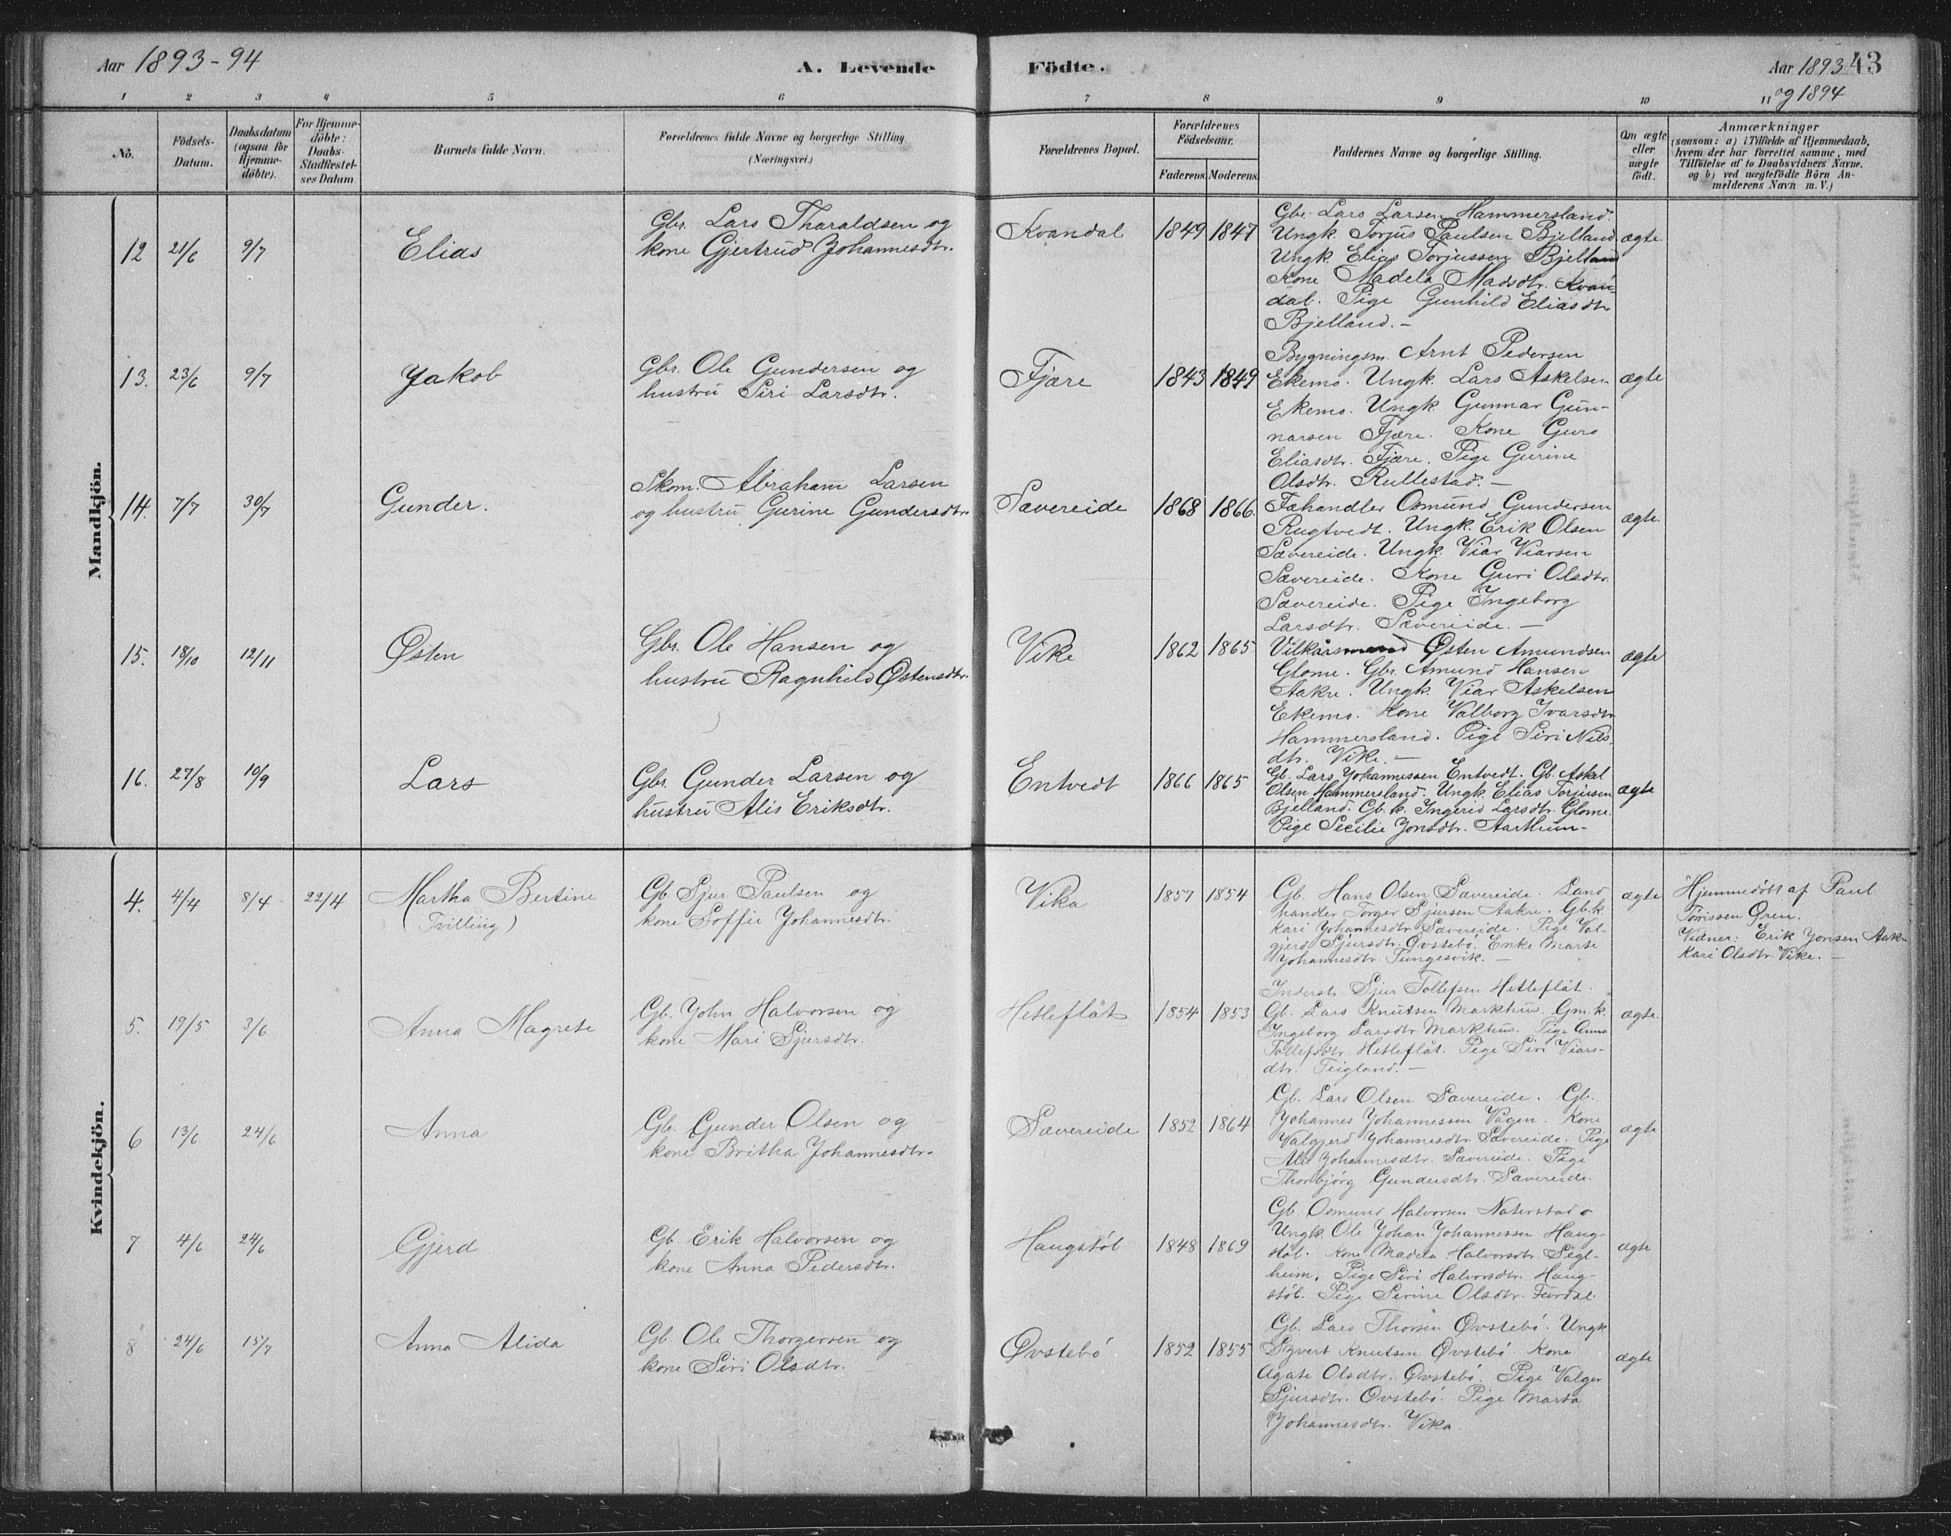 Aar 1893-94
A. Levende
Födte.
Aar 1893 43
og 1894
1 2 3 4 5 6 7 8 9 10 11
No.
Födsels-
Datum.
Daabsdatum
(ogsaa for
Hjemme-
döbte).
For Hjemme-
döbte:
Daabs-
Stadfæstel-
ses Datum.
Barnets fulde Navn.
Forældrenes fulde Navne og borgerlige Stilling
(Næringsvei.)
Forældrenes Bopæl.
Forældrenes
Födselsaar.
Faderens. Moderens.
Faddernes Navne og borgerlige Stilling.
Om ægte
eller
uægte
födt.
Anmærkninger
(saasom: a) i Tilfælde af Hjemmedaab,
hvem der har forrettet samme, med
Tilföielse af to Daabsvidners Navne,
og b) ved uægtefödte Börn An-
melderens Navn m. V.)
Mandkjön.
12 21/6 9/7 Elias
Gbr. Lars Tharaldsen og
kone Gjertrud Johannesdtr.
Kvandal 1849 1847
Gbr. Lars Larsen Hammersland.
Ungk. Torjus Paulsen Bjelland
Ungk Elias Torjussen Bjelland
Kone Madela Madsdtr. Kvan-
dal. Pige Gunhild Eliasdtr
Bjelland.-
ægte
13. 23/6 9/7 Jakob
Gbr. Ole Gundersen og
hustru Siri Larsdtr.
Fjære 1843 1849
Bygningsm. Arnt Pedersen
Ekemo. Ungk. Lars Askelsen
Ekemo. Ungk. Gunnar Gun-
narsen Fjære. Kone Guro
Eliasdtr. Fjære. Pige Gurine
Olsdtr. Rullestad.-
ægte
14. 7/7 30/7 Gunder.
Skom. Abraham Larsen
og hustru Gurine Gundersdtr.
Sævereide 1868 1866.
Fæhandler Osmund Gundersen
Rugtvedt. Ungk. Erik Olsen
Sævereide. Ungk. Viar Viarsen
Sævereide. Kone Guri Olsdtr.
Sævereide. Pige Ingeborg
Larsdtr. Sævereide.-
ægte.
15. 18/10 12/11 Østen
Gbr. Ole Hansen og
hustru Ragnhild Østensdtr.
Vike 1862 1865
Vilkårsmand Østen Amundsen
Glome. Gbr. Amund Hansen
Aakre. Ungk. Viar Askelsen
Ekemo. Kone Valborg Ivarsdtr
Hammersland. Pige Siri Nils
dtr. Vike.-
ægte
16. 27/8 10/9 Lars
Gbr. Gunder Larsen og
hustru Alis Eriksdtr.
Entvedt 1866 1865
Gb. Lars Johannessen Entvedt. Gb. Askel
Olsen Hammersland. Ungk Elias Torjusen
Bjelland. Gb. k. Ingerid Larsdtr. Glome.
Pige Secilie Jonsdtr. Aarthun-
ægte
Kvindekjön.
4. 4/4 8/4 22/4 Martha Bertine
(Tvilling)
Gb Sjur Paulsen og
kone Soffie Johannesdtr.
Vika 1857 1854
Gb. Hans Olsen Sævereide. Land
handler Torger Sjursen Aakre. Gb.k
Kari Johannesdtr Sævereide. Pige Val-
gjerd Sjursdtr. Øvstebö. Enke Marte
Johannesdtr. Tungesvik.-
ægte
Hjemmedöbt af Paul
Törissen Ören.
Vidner: Erik Jonsen Aak-
Kari Olsdtr. Vike.-
5. 19/5 3/6 Anna Magrete
Gb. John Halvorsen og
kone Mari Sjursdtr.
Hetleflåt 1854 1853
Inderst Sjur Tollefsen Hetleflåt.
Gb. Lars Knutsen Markhus. Gm.k.
Ingeborg Larsdtr Markhus. Pige Anna
Tollefsdtr. Hetleflåt. Pige Siri Viars-
dtr. Teigland.-
ægte.
6 13/6 24/6 Anna
Gb. Gunder Olsen og
kone Britha Johannesdtr.
Sævereide 1852 1864
Gb. Lars Olsen Sævereide. Gb.
Johannes Johannessen Vågen. Kone
Valgjerd Johannesdtr. Sævereide. Pige
Alis Johannesdtr. Sævereide. Pige
Thorbjörg Gundersdtr. Sævereide.
ægte
7 4/6 24/6 Gjerd
Gb. Erik Halvorsen og
kone Anna Pedersdtr.
Haugstöl 1848 1869
Gb. Osmund Halvorsen Naterstad o
Ungk Ole Johan Johannessen Haug-
stöl. Kone Madela Halvorsdtr.
heim. Pige Siri Halvorsdtr. Haug-
stöl. Pige Serine Olsdtr.
ægte
8 24/6 15/7 Anna Alida
Gb. Ole Thorgersen og
kone Siri Olsdtr.
Øvstebö 1852 1855
Gb. Lars Thorsen Øvstebö. Ungk
Syvert Knutsen Øvstebö. Kone
Agate Olsdtr. Øvstebö. Pige Valger
Sjursdtr. Øvstebö. Pige Marta
Johannesdtr. Vika
ægte